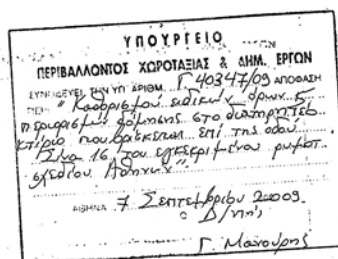 ΥΠΟΥΡΓΕΙΟ
ΠΕΡΙΒΑΛΛΟΝΤΟΣ ΧΩΡΟΤΑΞΙΑΣ & ΔΗΜ. ΕΡΓΩΝ
ΣΥΝΟΔΕΥΕΙ ΤΗΝ ΥΠ' ΑΡΙΘΜ. Γ 40347/09 ΑΠΟΦΑΣΗ
ΠΕΡΙ "Καθορισμού ειδικών όρων &
περιορισμών δόμησης στο διατηρητέο
κτίριο που βρίσκεται επί της οδού
Σίνα 16, του εγκεκριμένου ρυμοτ.
σχεδίου Αθηνών"
ΑΘΗΝΑ 7 Σεπτεμβρίου 2009
Ο Δ/ντής
Γ. Μανούρης